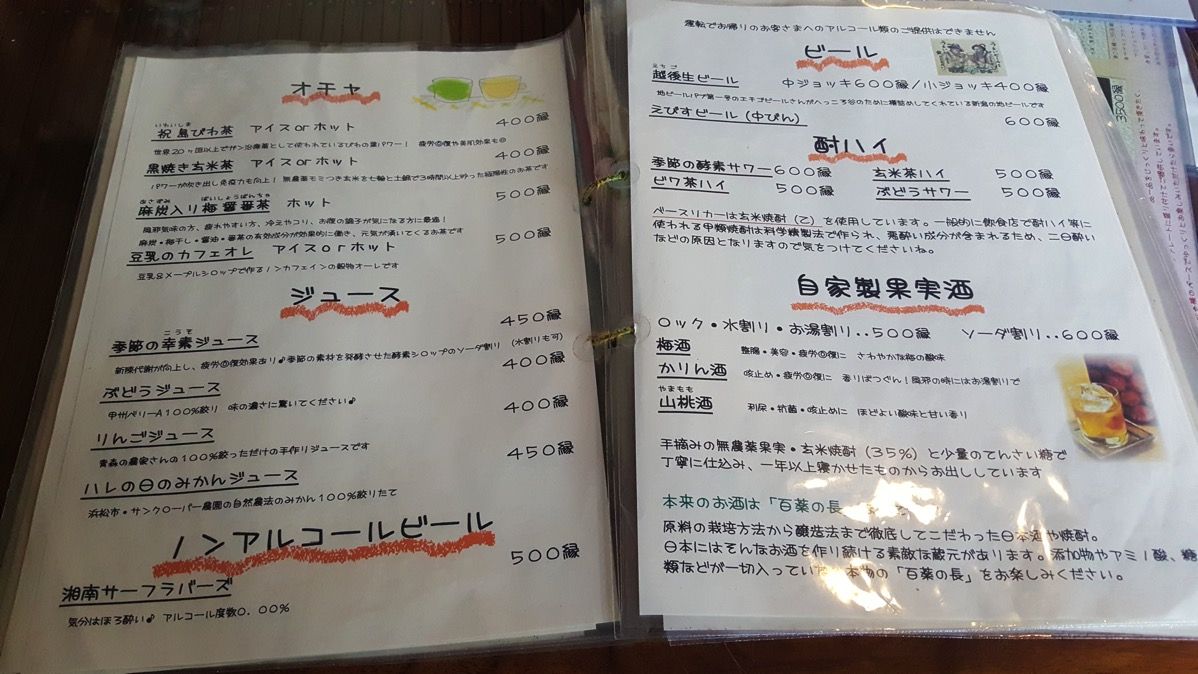 オチャ
いわいしま
祝島びわ茶 アイスorホット 400縁
世界20ヶ国以上でガン治療薬として使われているびわの葉パワー! 疲労回復や美肌効果も◎
黒焼き玄米茶 アイスorホット 400縁
パワーが吹き出し免疫力も向上! 無農薬モミつき玄米を七輪と土鍋で3時間以上炒った極陽性のお茶です
あさずみ ばいしょうばんちゃ
麻炭入り梅醤番茶 ホット 500縁
風邪気味の方、疲れやすい方、冷えやコリ、お腹の調子が気になる方に最適!
麻炭・梅干し・醤油・番茶の有効成分が効果的に働き、元気が湧いてくるお茶です
豆乳のカフェオレ アイスorホット 500縁
豆乳&メープルシロップで作るノンカフェインの穀物オーレです
ジュース
こうそ
季節の幸素ジュース 450縁
新陳代謝が向上し、疲労回復効果あり♪季節の素材を発酵させた酵素シロップのソーダ割り (水割りも可)
ぶどうジュース 400縁
甲州ベリーA100%絞り 味の濃さに驚いてください♪
りんごジュース 400縁
青森の農家さんの100%絞っただけの手作りジュースです
ハレの日のみかんジュース 450縁
浜松市・サンクローバー農園の自然農法のみかん100%絞りたて
ノンアルコールビール
湘南サーフラバーズ 500縁
気分はほろ酔い♪ アルコール度数0.00%
運転でお帰りのお客さまへのアルコール類のご提供はできません
ビール
えちご
越後生ビール 中ジョッキ600縁/小ジョッキ400縁
地ビールパブ第一号のエチゴビールさんがへっころ谷のために樽詰めしてくれている新潟の地ビールです
えびすビール(中びん) 600縁
酎ハイ
季節の酵素サワー600縁 玄米茶ハイ 500縁
ビワ茶ハイ 500縁 ぶどうサワー 500縁
ベースリカーは玄米焼酎(乙)を使用しています。一般的に飲食店で酎ハイ等に
使われる甲類焼酎は科学精製法で作られ、悪酔い成分が含まれるため、二日酔い
などの原因となりますので気をつけてくださいね。
自家製果実酒
ロック・水割り・お湯割り‥500縁 ソーダ割り‥600縁
梅酒 整腸・美容・疲労回復に さわやかな梅の酸味
かりん酒 咳止め・疲労回復に 香りばつぐん!風邪の時にはお湯割りで
やまもも
山桃酒 利尿・抗菌・咳止めに ほどよい酸味と甘い香り
手摘みの無農薬果実・玄米焼酎(35%)と少量のてんさい糖で
丁寧に仕込み、一年以上寝かせたものからお出ししています
本来のお酒は「百薬の長
原料の栽培方法から醸造法まで徹底してこだわった日本酒や焼酎。
日本にはそんなお酒を作り続ける素敵な蔵元があります。添加物やアミノ酸、糖
類などが一切入っていない本物の「百薬の長」をお楽しみください。